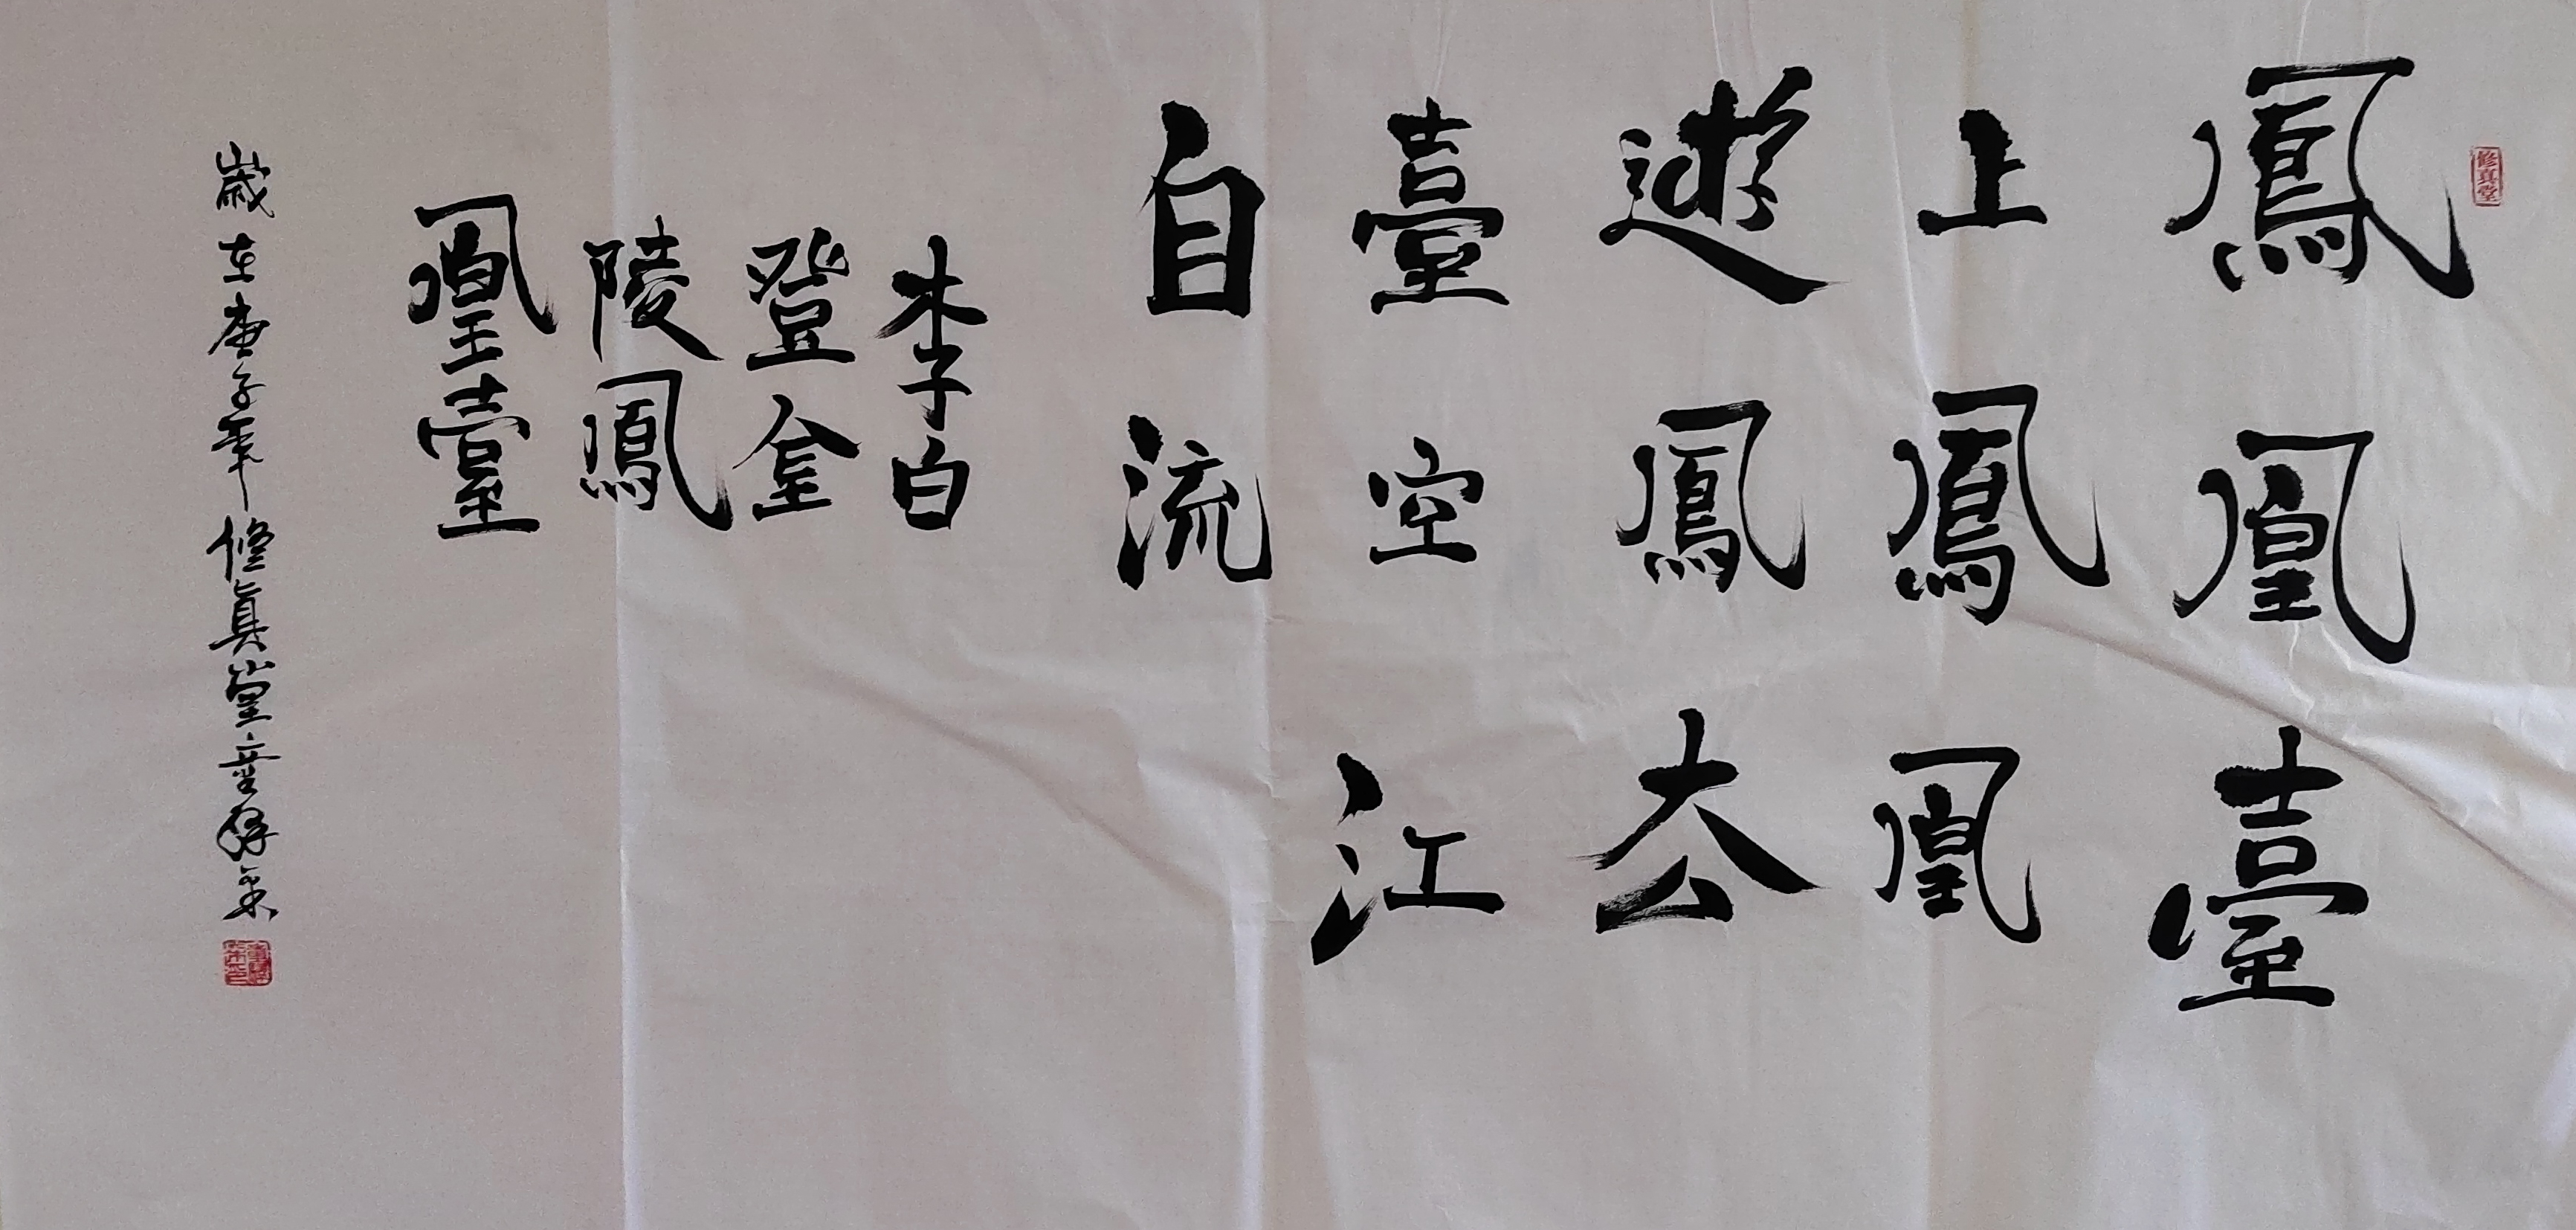 修真堂
鳳凰臺
上鳳凰
遊鳳去
臺空江
自流
李白
登金
陵鳳
凰臺
歲在庚子年修真堂章